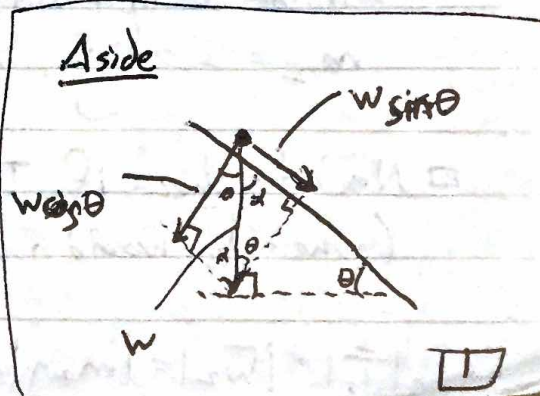 Aside
W sinθ
W cosθ
θ α
α θ
θ
W